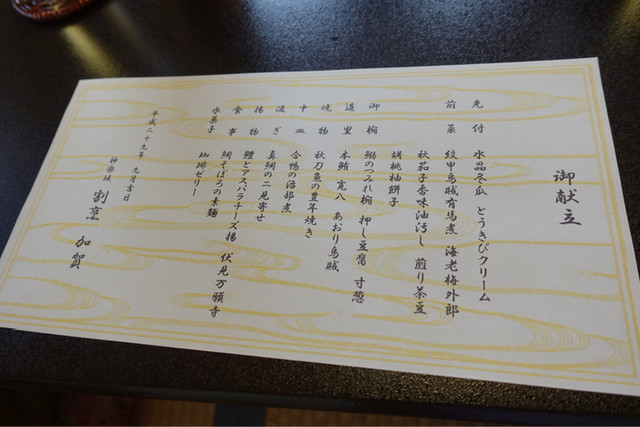 御献立
先付 水晶冬瓜 とうきびクリーム
前菜 紋甲烏賊有馬煮 海老梅外郎
秋茄子香味油浸し 煎り茶豆
胡桃柚餅子
御椀 鰯のつみれ椀 押し豆腐 寸葱
造里 本鮪 寛八 あおり烏賊
焼物 秋刀魚の豊年焼き
中皿 合鴨の治部煮
凌ぎ 真鯛の二見寄せ
揚物 鱧とアスパラチーズ揚 伏見万願寺
食事 鯛そぼろの素麺
水菓子 珈琲ゼリー
平成二十九年 九月吉日
神楽坂 割烹 加賀